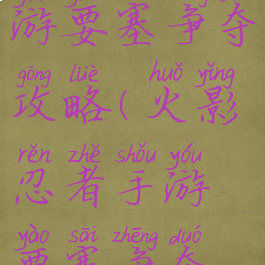 游要塞争夺
gōng lüè huǒ yǐng
攻略(火影
rěn zhě shǒu yóu
忍者手游
yào sāi zhēng duó
要塞争夺